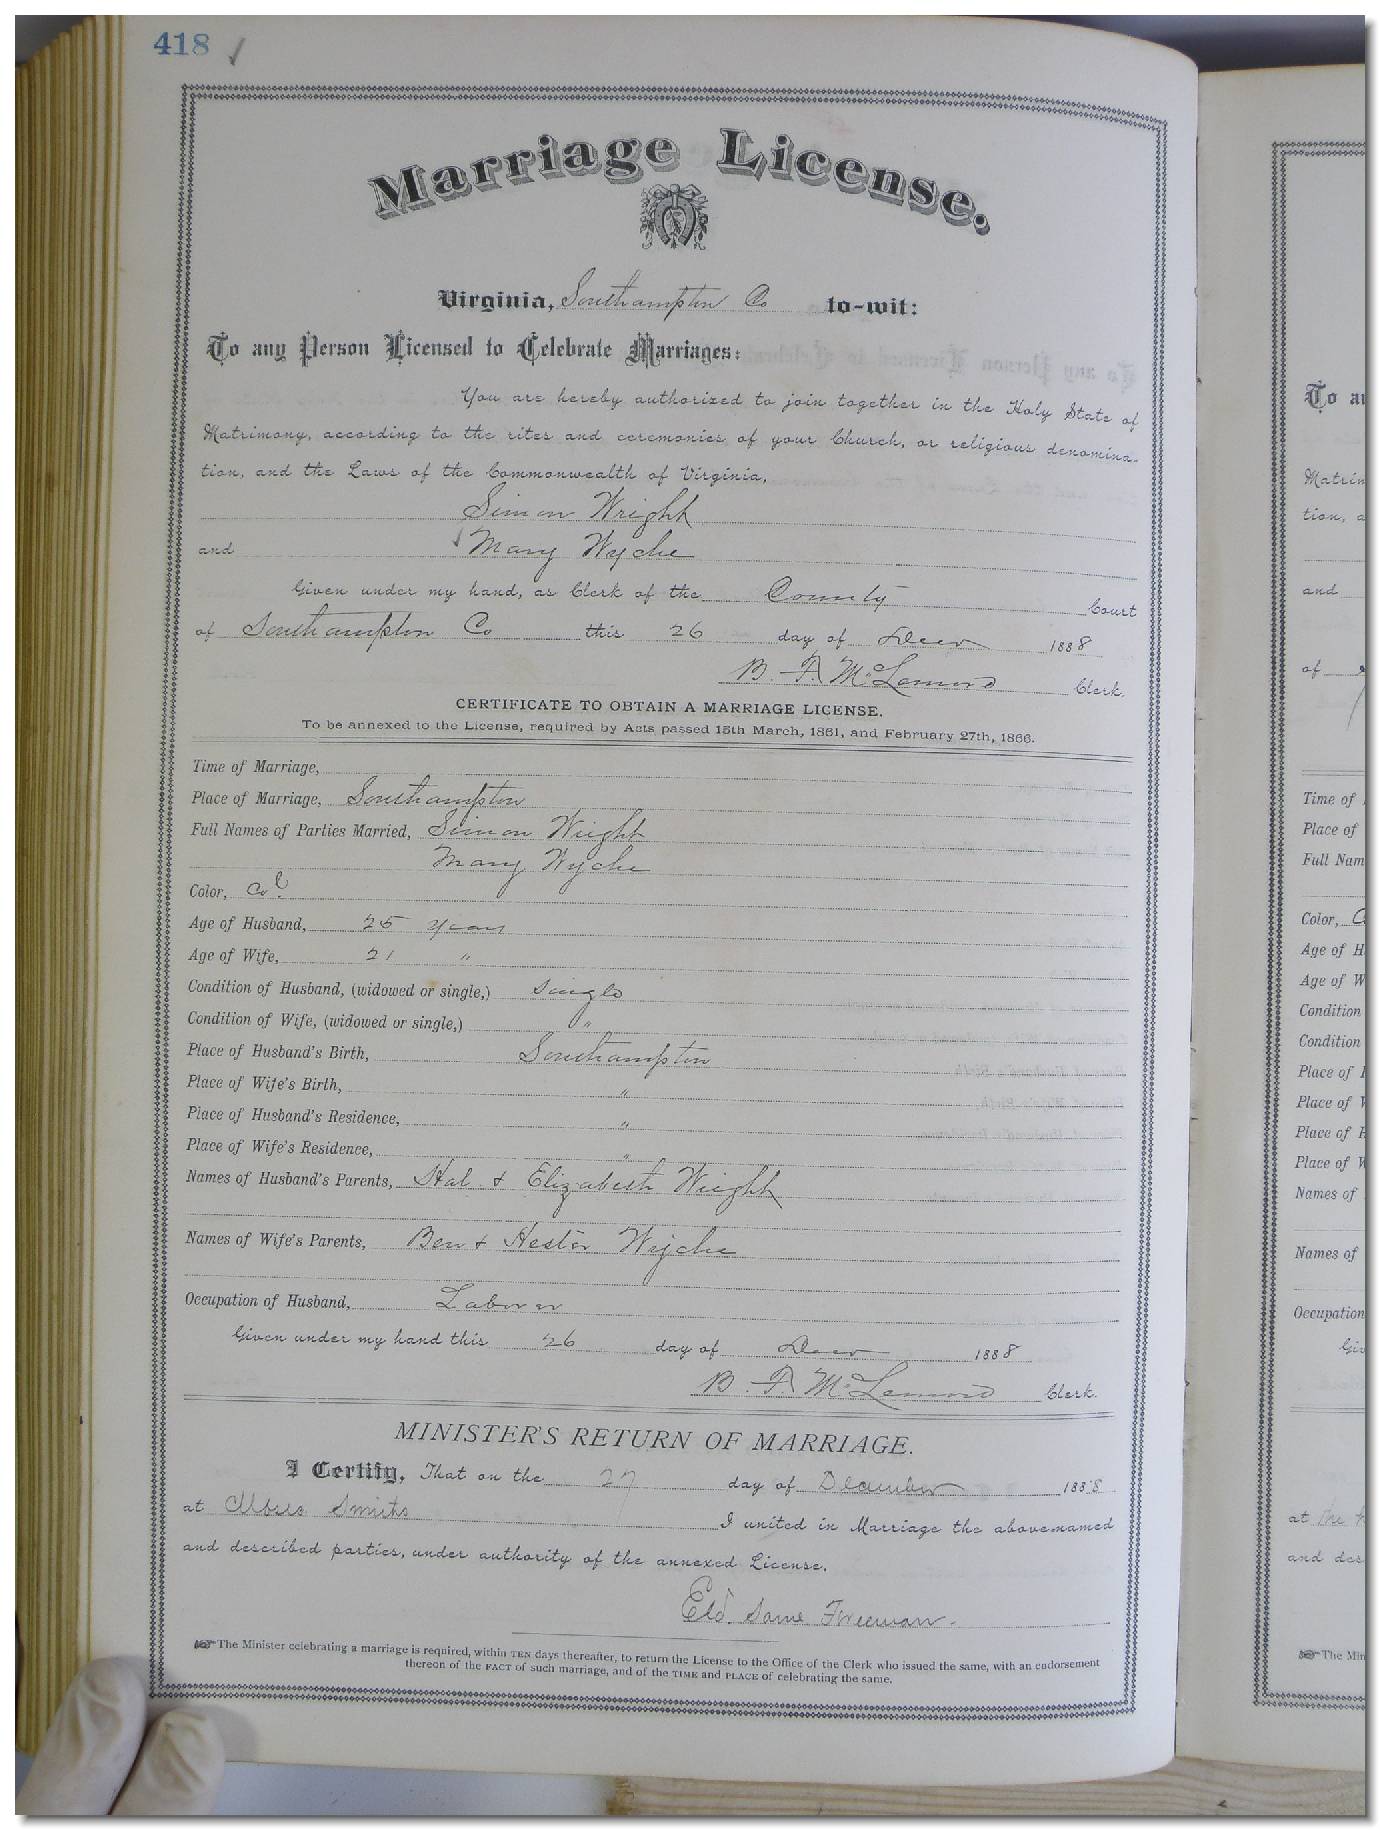 418 ✓
Marriage License.
Virginia, Southampton Co to-wit:
To any Person Licensed to Celebrate Marriages:
You are hereby authorized to join together in the Holy State of
Matrimony, according to the rites and ceremonies of your Church, or religious denomina-
tion, and the Laws of the Commonwealth of Virginia,
Simon Wright
and ✓ Mary Wyche
Given under my hand, as Clerk of the County Court
of Southampton Co this 26 day of Decr 1888
B. F. McLemore Clerk.
CERTIFICATE TO OBTAIN A MARRIAGE LICENSE.
To be annexed to the License, required by Acts passed 15th March, 1861, and February 27th, 1866.
Time of Marriage,
Place of Marriage, Southampton
Full Names of Parties Married, Simon Wright
Mary Wyche
Color, Col
Age of Husband, 25 years
Age of Wife, 21 "
Condition of Husband, (widowed or single,) Single
Condition of Wife, (widowed or single,) "
Place of Husband's Birth, Southampton
Place of Wife's Birth, "
Place of Husband's Residence, "
Place of Wife's Residence, "
Names of Husband's Parents, Hal & Elizabeth Wright
Names of Wife's Parents, Ben & Hester Wyche
Occupation of Husband, Laborer
Given under my hand this 26 day of Decr 1888
B. F. McLemore Clerk.
MINISTER'S RETURN OF MARRIAGE.
I Certify, That on the 27 day of December 1888
at Smiths I united in Marriage the above-named
and described parties, under authority of the annexed License.
Eld. Same Freeman.
The Minister celebrating a marriage is required, within TEN days thereafter, to return the License to the Office of the Clerk who issued the same, with an endorsement
thereon of the FACT of such marriage, and of the TIME and PLACE of celebrating the same.
To a
Matrim
tion, a
and
of
Time of
Place of
Full Nam
Color, C
Age of H
Age of W
Condition
Condition
Place of
Place of W
Place of H
Place of W
Names of
Names of
Occupation
Giv
at the
and des
The Min